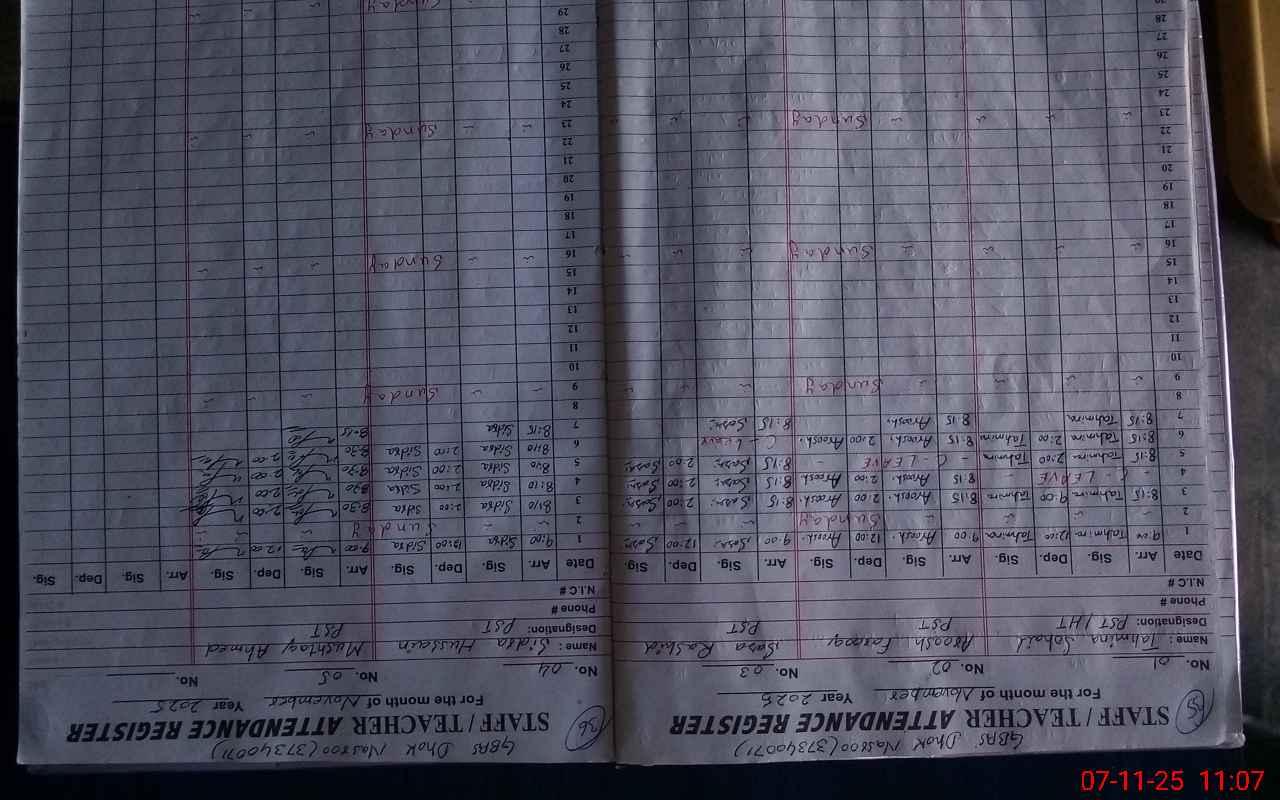 GBPS Dhok Nasroo (37340071)
STAFF / TEACHER ATTENDANCE REGISTER
For the month of November Year 2025
No. 01 No. 02 No. 03
Name : Tahmina Sohail Aroosh Farooq Rashid
Designation: PST / HT PST PST
Phone #
N.I.C #
Date Arr. Sig. Dep. Sig. Arr. Sig. Dep. Sig. Arr. Sig. Dep. Sig.
1 9:00 Tahmina 12:00 Tahmina 9:00 Aroosh. 12:00 Aroosh. 9:00 12:00
2 Sunday
3 8:15 Tahmina 9:00 Tahmina 8:15 Aroosh. 2:00 Aroosh. 8:15 2:00
4 - C - LEAVE - 8:15 Aroosh. 2:00 Aroosh. 8:15 2:00
5 8:15 Tahmina 2:00 Tahmina - C - LEAVE - 8:15 2:00
6 8:15 Tahmina 2:00 Tahmina 8:15 Aroosh. 2:00 Aroosh. C - Leave
7 8:15 Tahmina 8:15 Aroosh. 8:15
8
9 Sunday
10
11
12
13
14
15
16 Sunday
17
18
19
20
21
22
23 Sunday
24
25
26
27
28
29
30
GBPS Dhok Nasroo (37340071)
36
STAFF / TEACHER ATTENDANCE REGISTER
For the month of November Year 2025
No. 04 No. 05 No.
Name : Sidra Hussain Mushtaq Ahmed
Designation: PST PST
Phone #
N.I.C #
Date Arr. Sig. Dep. Sig. Arr. Sig. Dep. Sig. Arr. Sig. Dep. Sig.
1 9:00 Sidra 12:00 Sidra 9:00 12:00
2 Sunday
3 8:10 Sidra 2:00 Sidra 8:30 2:00
4 8:10 Sidra 2:00 Sidra 8:30 2:00
5 8:10 Sidra 2:00 Sidra 8:30 2:00
6 8:10 Sidra 2:00 Sidra 8:30 2:00
7 8:15 Sidra 8:15
8
9 Sunday
10
11
12
13
14
15
16 Sunday
17
18
19
20
21
22
23 Sunday
24
25
26
27
28
29
Sunday
07-11-25 11:07